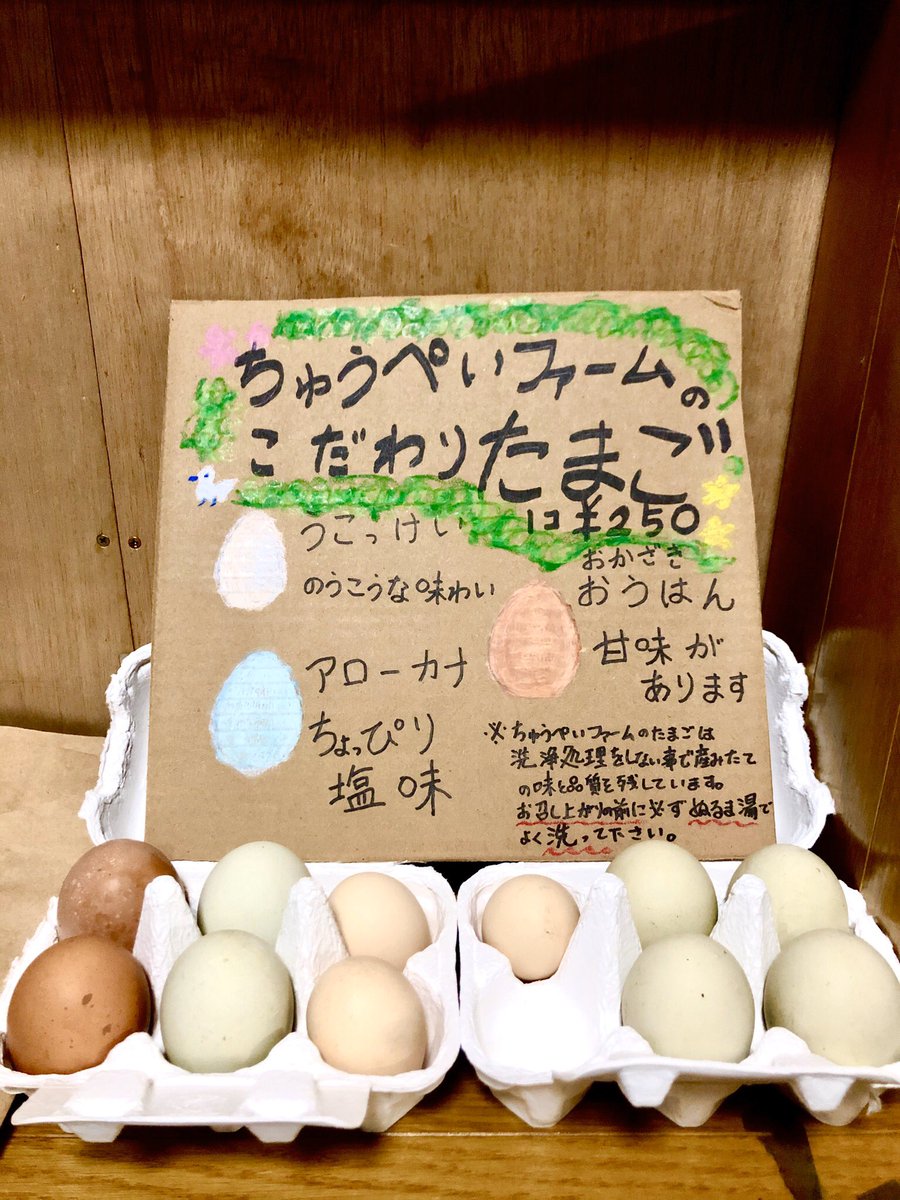 ちゅうぺいファームの
こだわりたまご
1コ ¥250
うこっけい
のうこうな味わい
おかざき
おうはん
甘味が
あります
アローカナ
ちょっぴり
塩味
※ちゅうぺいファームのたまごは
洗浄処理をしない事で産みたて
の味と品質を残しています。
お召し上がりの前に必ずぬるま湯で
よく洗って下さい。